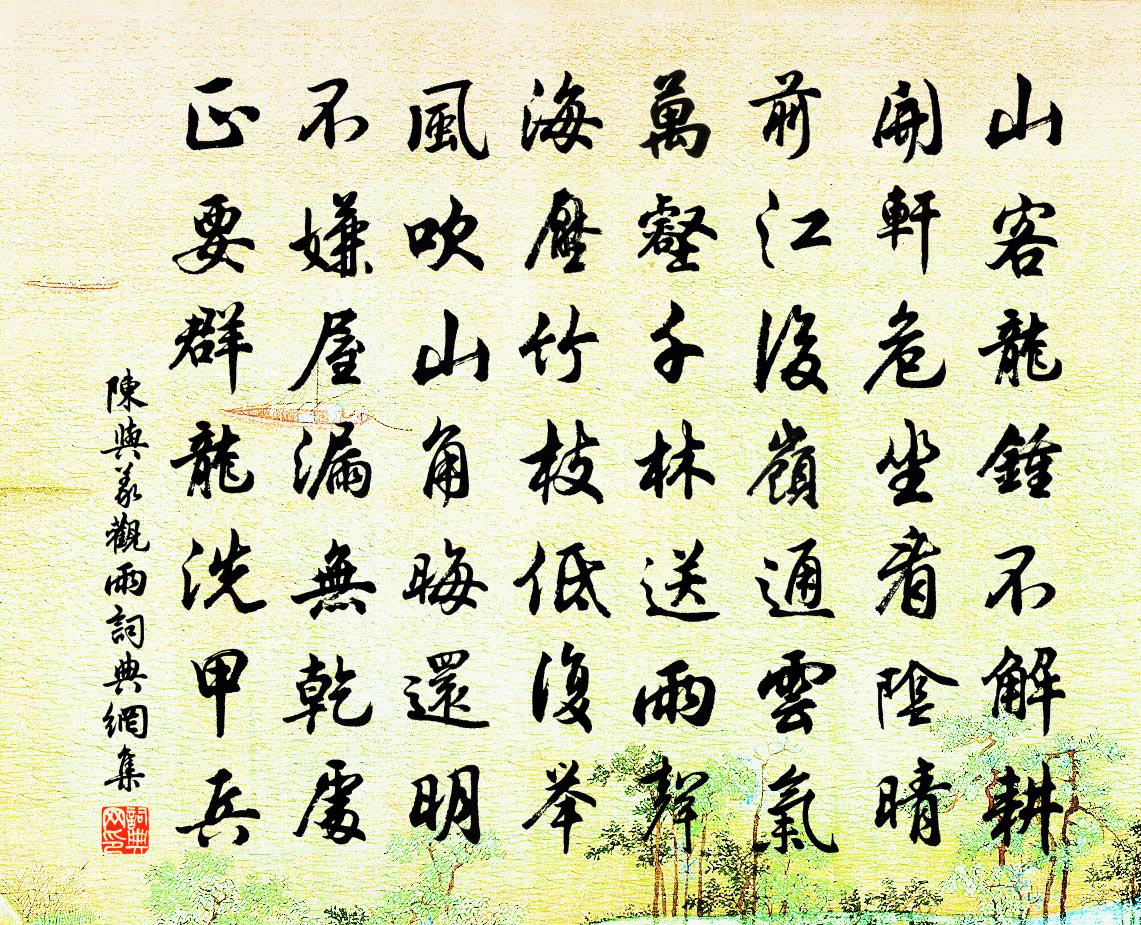 山客龍鍾不解耕
開軒危坐看陰晴
前江後嶺通雲氣
萬壑千林送雨聲
海壓竹枝低復举
風吹山角晦還明
不嫌屋漏無乾處
正要群龍洗甲兵
陳與義觀雨詞典網集
詞典網印